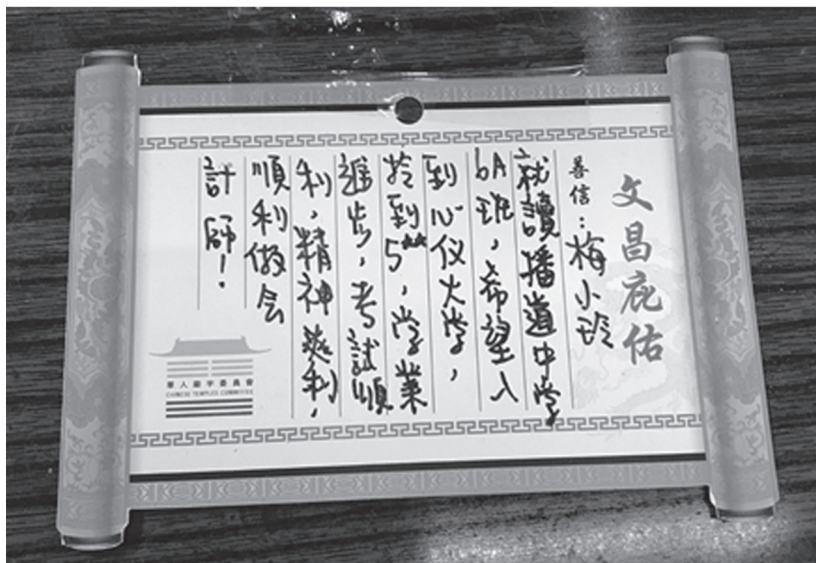 文昌庇佑
善信：梅小玲
就讀播道中学
6A班，希望入
到心仪大学，
拎到5**，学業
進步，考試順
利，精神爽利，
順利做会
計師！
華人廟宇委員會
CHINESE TEMPLES COMMITTEE